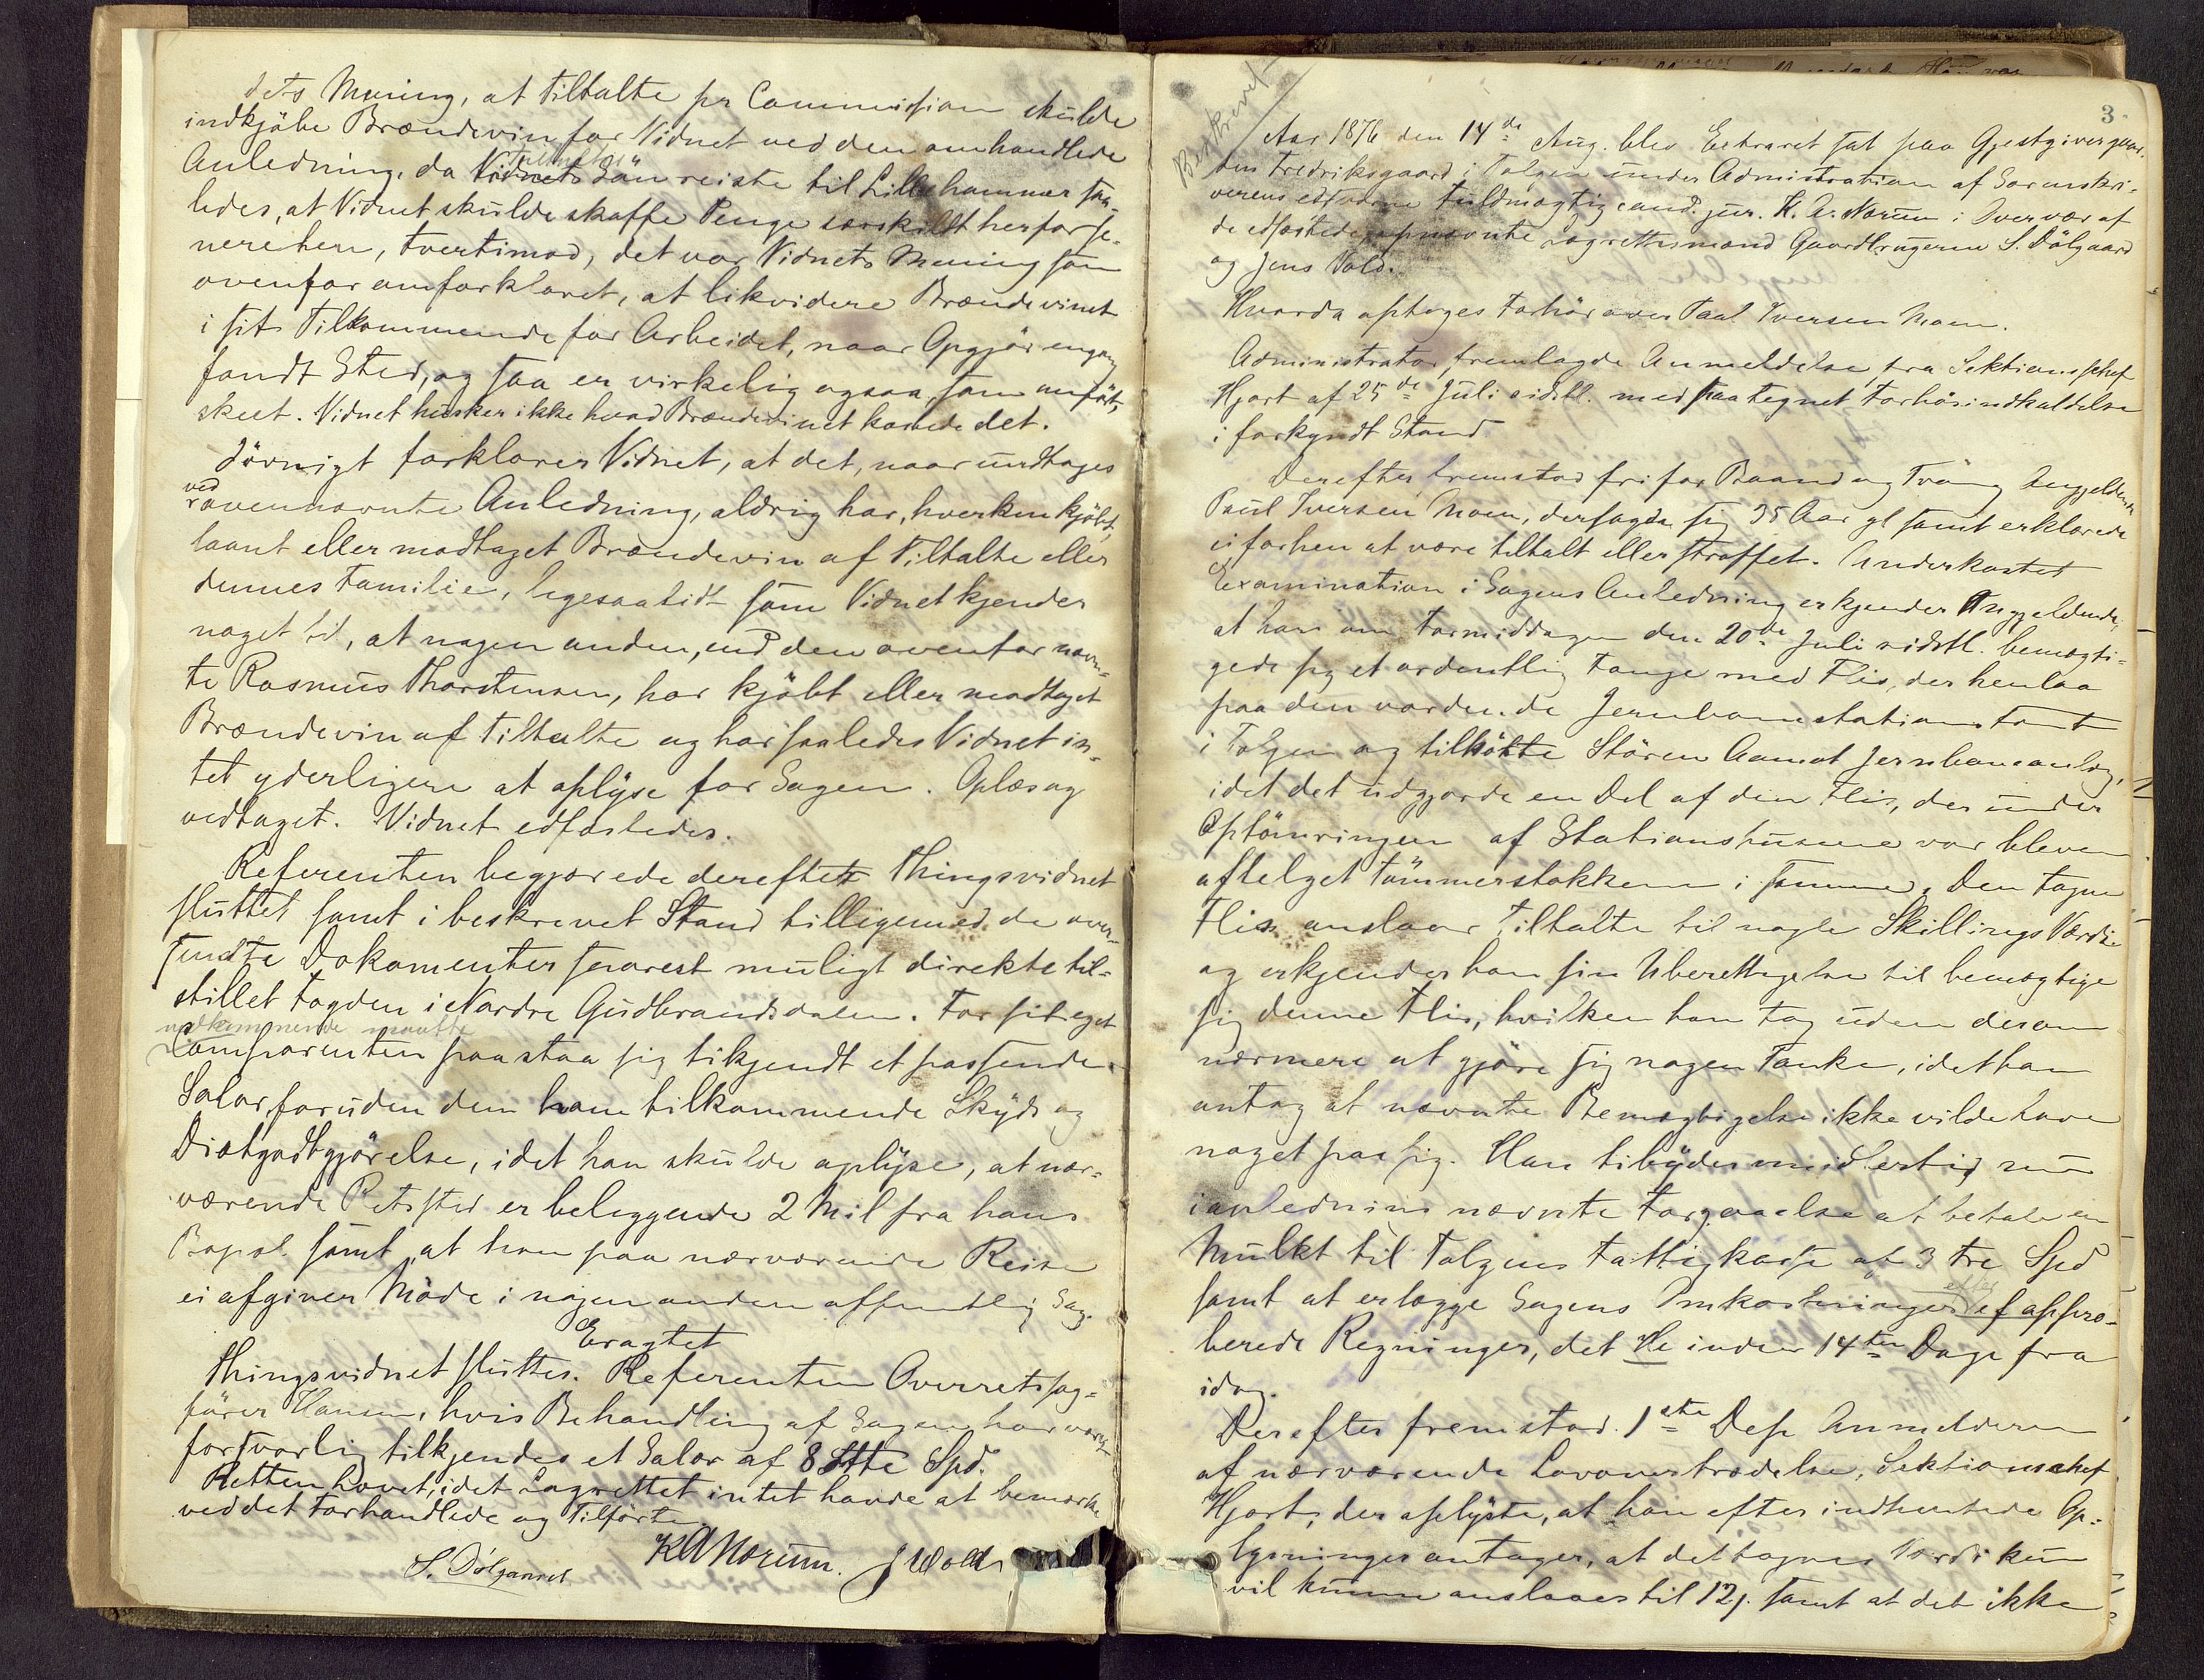 dets Mening, at Tiltalte pr Commission skulde
indkjøbe Brændevin for Vidnet ved den omhandlede
Anledning, da Vidnets Tiltaltes Søn reiste til Lillehammer saa-
ledes, at Vidnet skulde skaffe Penge særskilt herfor se-
nerehen, tvertimod, det var Vidnets Mening som
ovenfor omforklaret, at likvidere Brændevinet
i sit Tilkommende for Arbeidet, naar Opgjør engang
fandt Sted, og saa er virkelig ogsaa, som anført,
skeet. Vidnet husker ikke hvad Brændevinet kostede det.
Jøvnigt forklarer Vidnet, at det, naar undtages
ved ovennævnte Anledning, aldrig har, hverken kjøbt,
laant eller modtaget Brændevin af Tiltalte eller
dennes Familie, ligesaalidt som Vidnet kjender
noget til, at nogen anden, end den ovenfor nævn-
te Rasmus Thorstensen, har kjøbt eller modtaget
Brændevin af Tiltalte og har saaledes Vidnet in-
tet yderligere at oplyse for Sagen. Oplæst og
vedtaget. Vidnet edfæstedes.
Referenten begjærede derefter Thingsvidnet
sluttet samt i beskrevet Stand tilligemed de over-
sendte Dokumenter snarest muligt direkte til-
stillet Fogden i Nordre Gudbrandsdalen. For sit eget
vedkommende maatte
Comparenten paastaa sig tilkjendt et passende
Salær foruden den ham tilkommende Skyds og
Diætgodtgjørelse, idet han skulde oplyse, at nær-
værende Retssted er beliggende 2 Mil fra hans
Bopæl samt at han paa nærværende Reise
ei afgiver Møde i nogen anden offentlig Sag.
Eragtet
Thingsvidnet sluttes. Referenten Overretssag-
fører Hansen, hvis Behandling af Sagen har været
forsvarlig tilkjendes et Salær af 8 Otte Spd.
Retten hævet, idet Lagrettet intet havde at bemærke
ved det Forhandlede og Tilførte.
S. Dølgaard KANærum. J Wold
3
Beskrevet
Aar 1876 den 14de Aug. blev Extraret sat paa Gjestgivergaar-
den Fredriksgaard i Tolgen under Administration af Sorenskri-
verens edsvorne Fuldmægtig cand. jur. K. A. Nærum i Overvær af
de edfæstede opnævnte Lagrettesmænd Gaardbrugerne S. Dølgaard
og Jens Vold.
Hvorda optoges Forhør over Paul Iversen Moen.
Administrator fremlagde Anmeldelse fra Sektionschef
Hjort af 25de Juli sidstl. med paategnet Forhørsindkaldelse
i forkyndt Stand
Derefter fremstod fri for Baand og Tvang Angjeldende
Paul Iversen Moen, der sagde sig 35 Aar gl samt erklærede
ei forhen at være tiltalt eller straffet. Underkastet
Examination i Sagens Anledning erkjender Angjeldende,
at han om Formiddagen den 20de Juli sidstl. bemægti-
gede sig et ordentlig Fange med Flis, der henlaa
paa den vordende Jernbanestationstomt
i Tolgen og tilhørte Støren Aamot Jernbaneanlæg,
idet det udgjorde en Del af den Flis, der under
Optømringen af Stationshusene var bleven
aftelget Tømmerstokkene i samme. Den tagne
Flis anslaar Tiltalte til nogle Skillings Værdie
og erkjender han sin Uberettigelse til bemægtige
sig denne Flis, hvilken han tog uden derom
nærmere at gjøre sig nogen Tanke, idet han
antog at nævnte Bemægtigelse ikke vilde have
noget paa sig. Han tilbyder imidlertid nu
i anledning nævnte Forgaaelse at betale en
Mulkt til Tolgens Fattigkasse af 3 tre Spd
samt at erlægge Sagens Omkostninger efter appro-
berede Regninger, det Hele inden 14ten Dage fra
idag.
Derefter fremstod 1ste Dep Anmelderen
af nærværende Lovovertrædelse, Sektionschef
Hjort, der oplyste, at han efter indhentede Op-
lysninger antager, at det tagnes Værdi kun
vil kunne anslaaes til 12 s. samt at det ikke